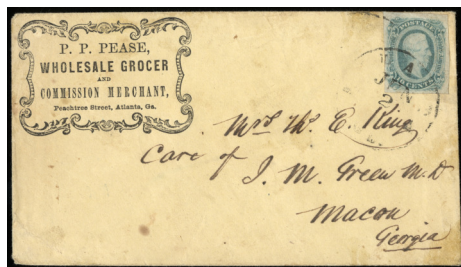 P. P. PEASE,
WHOLESALE GROCER
AND
COMMISSION MERCHANT,
Peachtree Street, Atlanta, Ga.
POSTAGE
CENTS
JAN
2
Mrs Th. E. King
Care of
J. M. Green M.D
Macon
Georgia